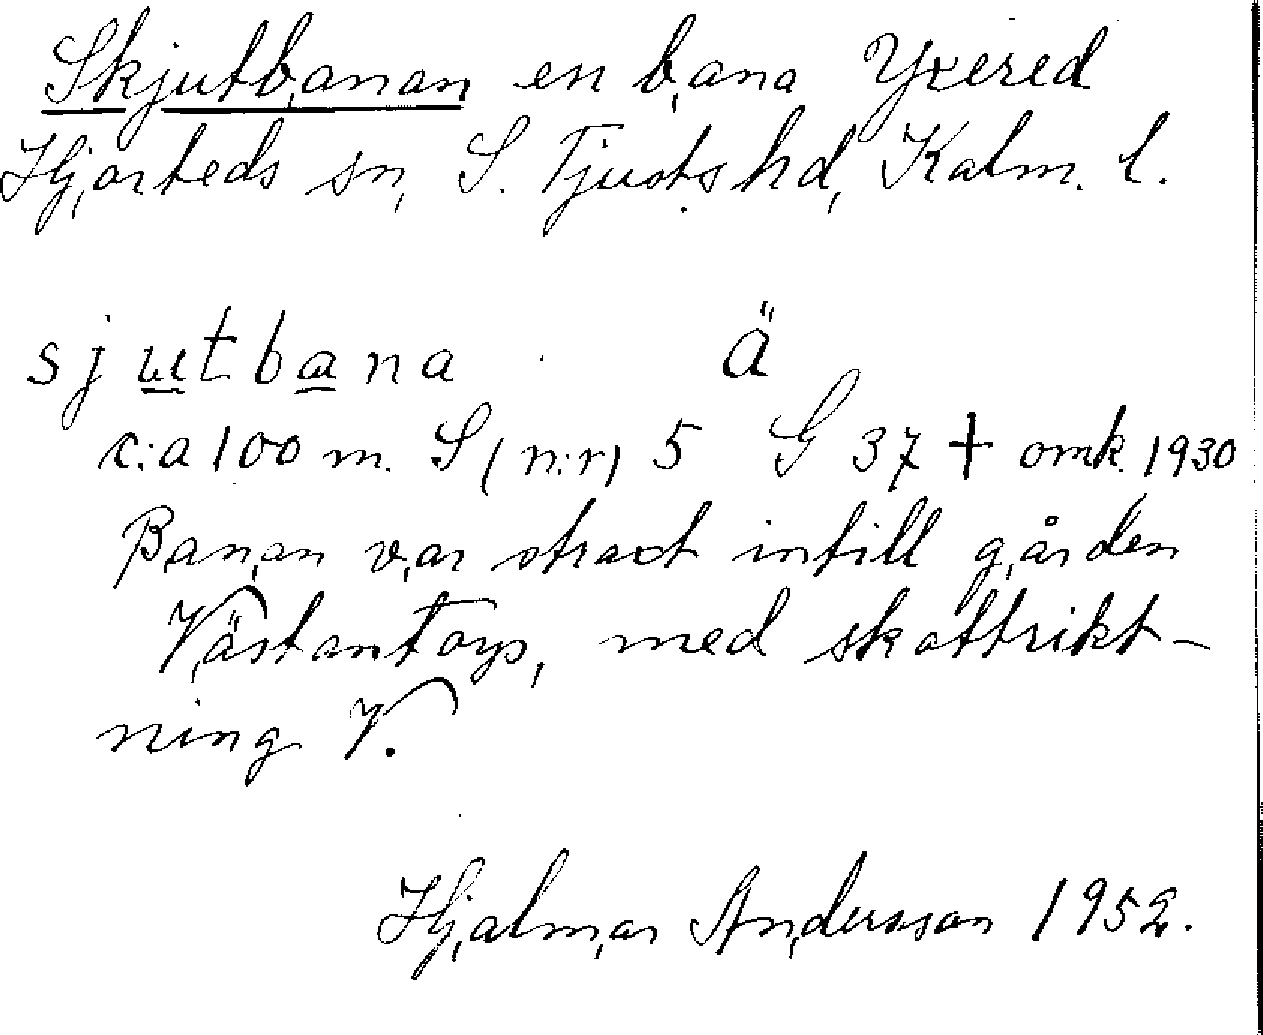 Skjutbanan en bana Yxered
Hjorteds sn, S. Tjusts hd, Kalm. l.
sjutbana Ä
c:a 100 m. S (n:r) 5 G 37 † omk. 1930
Banan var straxt intill gården
Västantorp, med skottrikt-
ning V.
Hjalmar Andersson 1952.